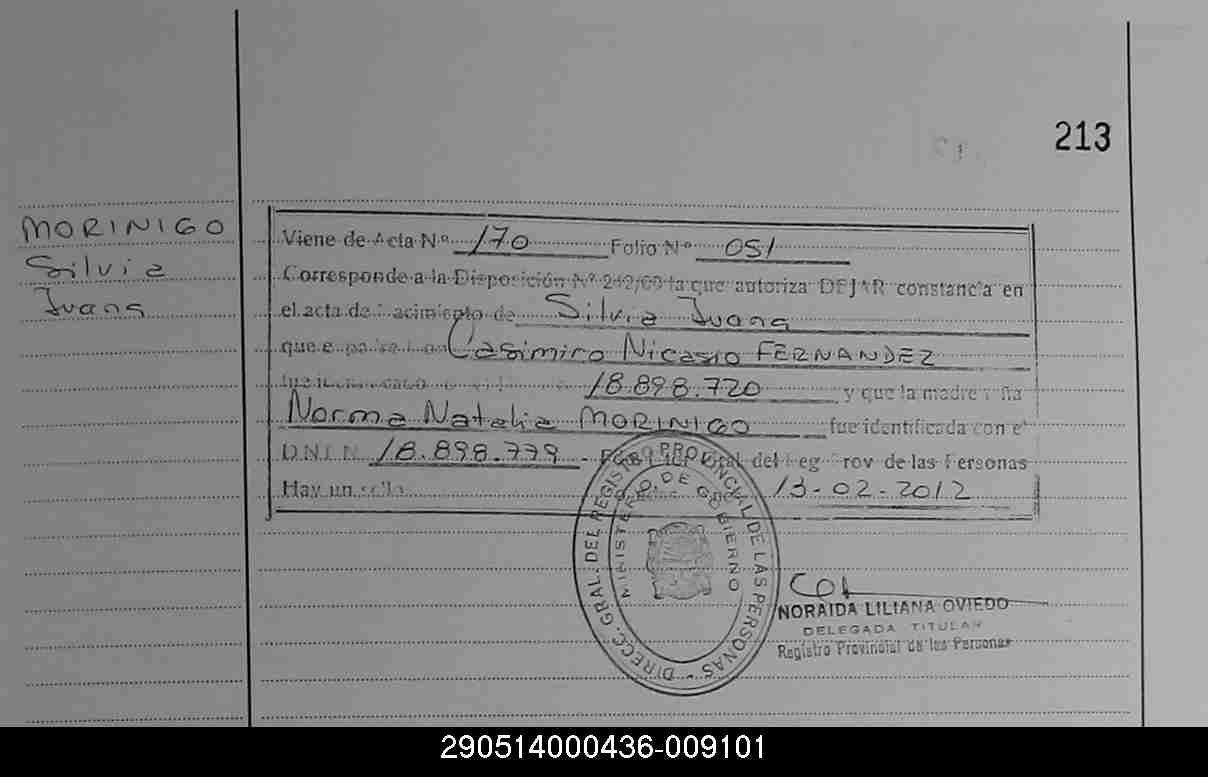 213
MORINIGO
Silvia
Juana
Viene de Acta Nº 170 Folio Nº 051
Corresponde a la Disposición Nº 242/00 la que autoriza DEJAR constancia en
el acta de nacimiento de Silvia Juana
que el Casimiro Nicasio FERNANDEZ
18.898.720 y que la madre
Norma Natalia MORINIGO fue identificada con el
DNI N 18.898.779 - del Reg Prov de las Personas
Hay un sello 13-02-2012
DIRECC. GRAL. DEL REGISTRO PROVINCIAL DE LAS PERSONAS -
MINISTERIO DE GOBIERNO
NORAIDA LILIANA OVIEDO
DELEGADA TITULAR
Registro Provincial de las Personas
290514000436-009101